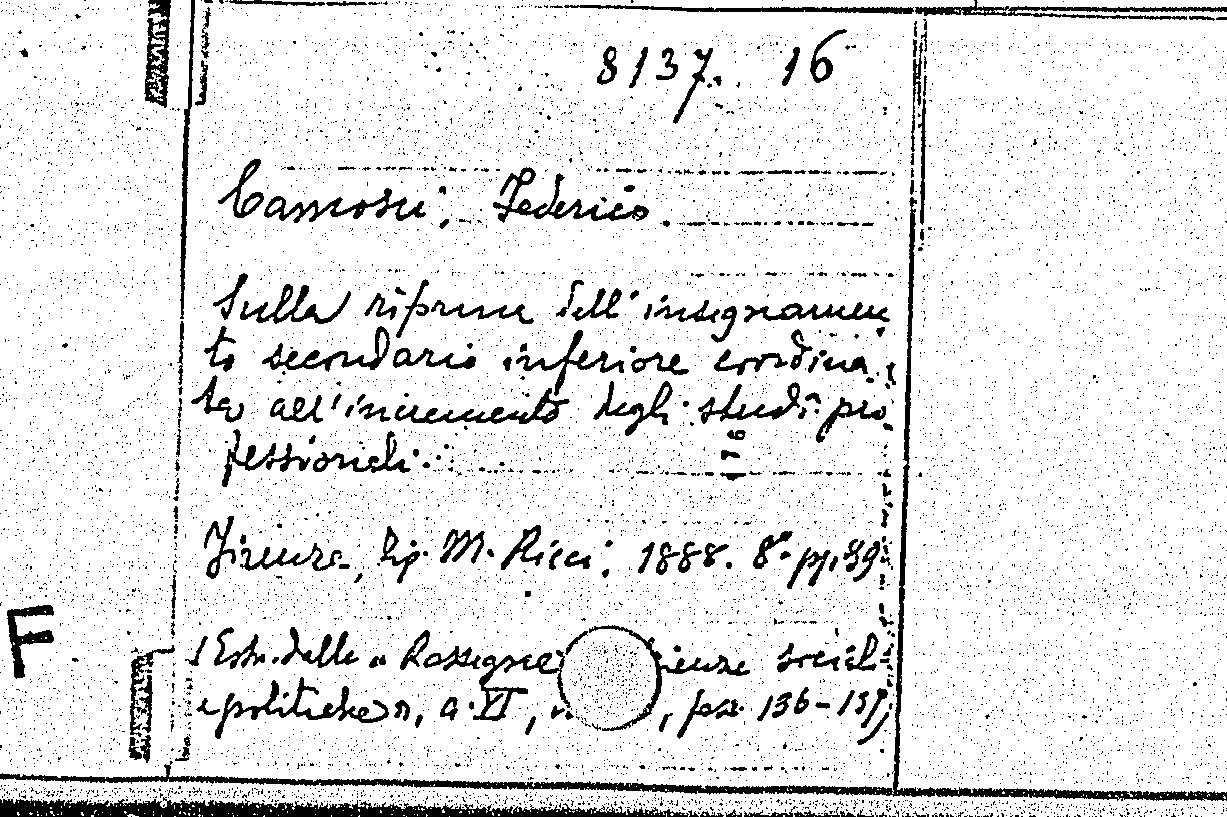 8137. 16
Federico.
Sulla riforma dell'insegnamen
to secondario inferiore coordina
ta all'incremento degli studi pro
fessionali.
Firenze, tip. M. Ricci, 1888. 8° pp. 39
(Estr. dalla "Rassegna ienze sociali
e politiche", a. VI, , fasc. 136-137)
F